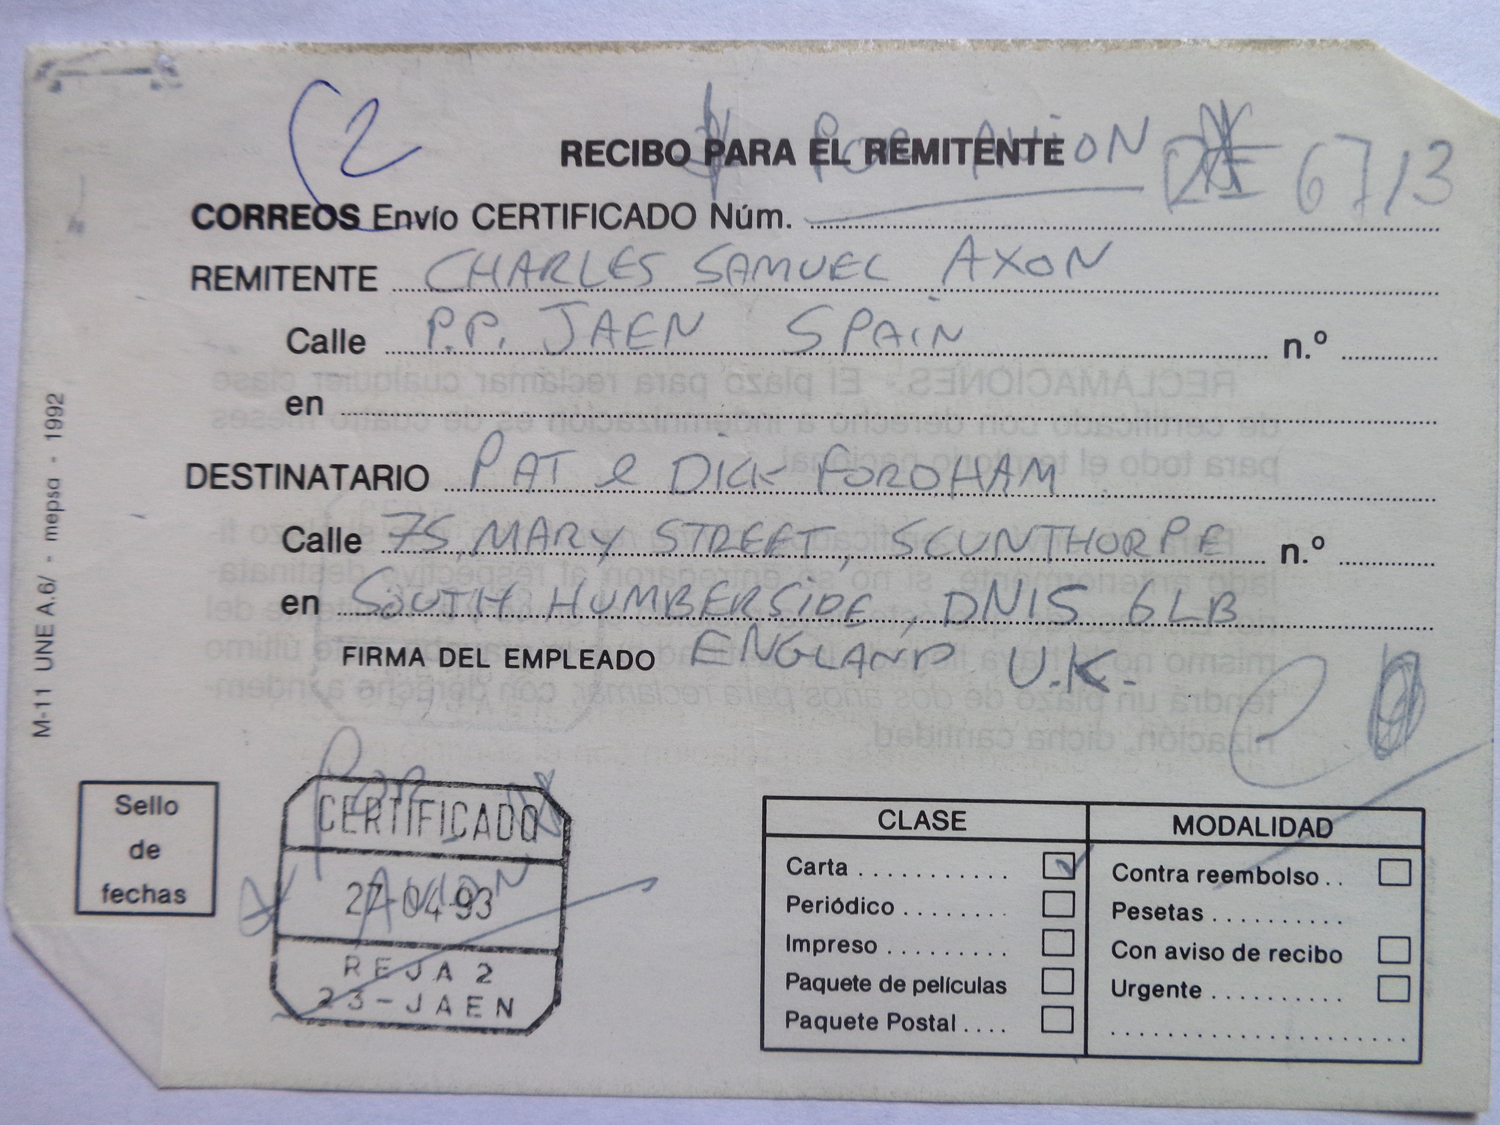 2
POR AVION
RECIBO PARA EL REMITENTE
6713
CORREOS Envío CERTIFICADO Núm.
REMITENTE CHARLES SAMUEL AXON
Calle P.P. JAEN SPAIN n.º
en
DESTINATARIO PAT & DICK FORDHAM
Calle 75, MARY STREET, SCUNTHORPE n.º
en SOUTH HUMBERSIDE, DN15 6LB
FIRMA DEL EMPLEADO ENGLAND U.K.
M-11 UNE A.6/ - mepsa - 1992
Sello
de
fechas
POR
AVION
CERTIFICADO
27-04-93
REJA 2
23-JAEN
CLASE
Carta
Periódico
Impreso
Paquete de películas
Paquete Postal
MODALIDAD
Contra reembolso
Pesetas
Con aviso de recibo
Urgente